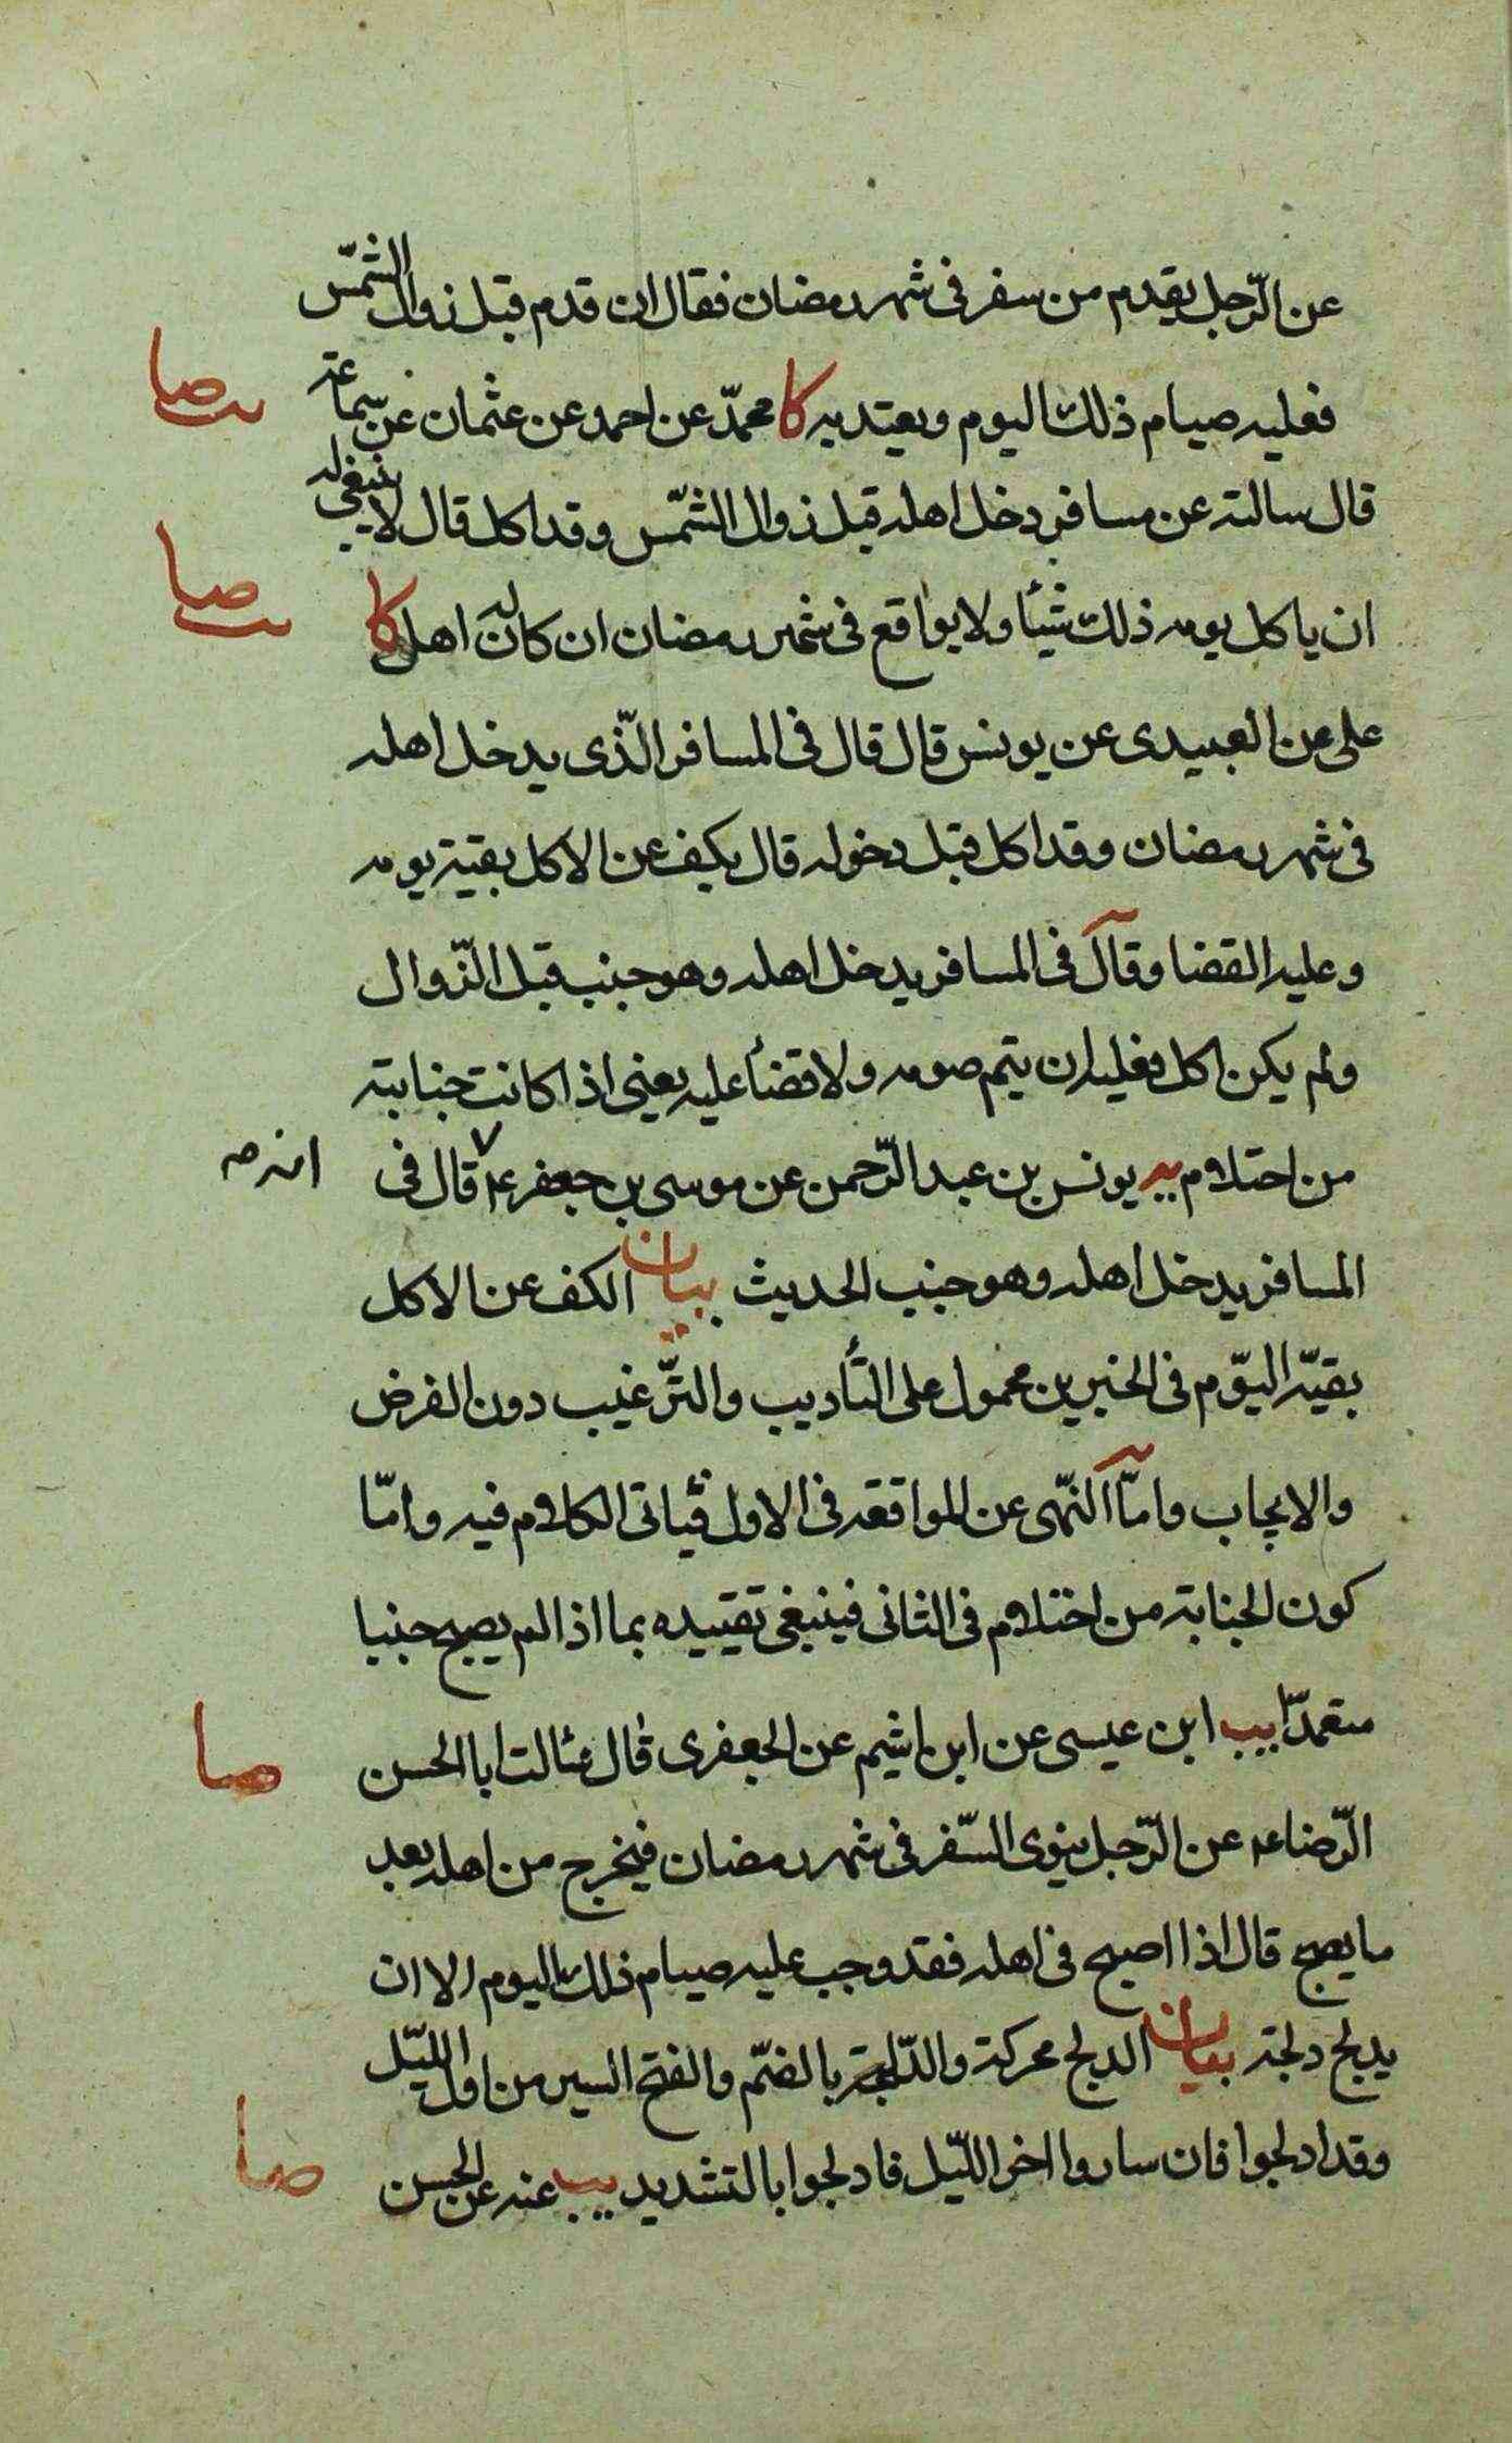 عن الرّجل يقدم من سفر فى شهر رمضان فقال ان قدم قبل زوال الشّمس
فعليه صيام ذلك اليوم ويعتد به كا محمّد عن احمد عن عثمان عن سماعة
قال سالته عن مسافر دخل اهله قبل زوال الشّمس وقد اكل قال لا ينبغى له
ان ياكل يومه ذلك شيئا ولا يواقع فى شهر رمضان ان كان له اهل كا
على عن العبيدى عن يونس قال قال فى المسافر الّذى يدخل اهله
فى شهر رمضان وقد اكل قبل دخوله قال يكف عن الاكل بقية يومه
وعليه القضا وقال فى المسافر يدخل اهله وهو جنب قبل الزّوال
ولم يكن اكل فعليه ان يتم صومه ولا قضاء عليه يعنى اذا كانت جنابته
من احتلام يه يونس بن عبد الرّحمن عن موسى بن جعفر ع قال فى
انه صه
المسافر يدخل اهله وهو جنب الحديث بيان الكف عن الاكل
بقيّة اليوم فى الخبرين محمول على التأديب والترّغيب دون الفرض
والايجاب وامّا النّهى عن المواقعة فى الاول فياتى الكلام فيه وامّا
كون الجنابة من احتلام فى الثانى فينبغى تقييده بما اذا لم يصبح جنبا
متعمدّا يب ابن عيسى عن ابن اشيم عن الجعفرى قال سالت ابا الحسن
الرّضا ع عن الرّجل ينوى السّفر فى شهر رمضان فيخرج من اهله بعد
ما يصبح قال اذا اصبح فى اهله فقد وجب عليه صيام ذلك اليوم الا ان
يدلج دلجة بيان الدلج محركة والدّلجة بالضّم والفتح السير من اول اللّيل
وقد ادلجوا فان ساروا اخر اللّيل فادلجوا بالتشديد يب عنه عن الحسن